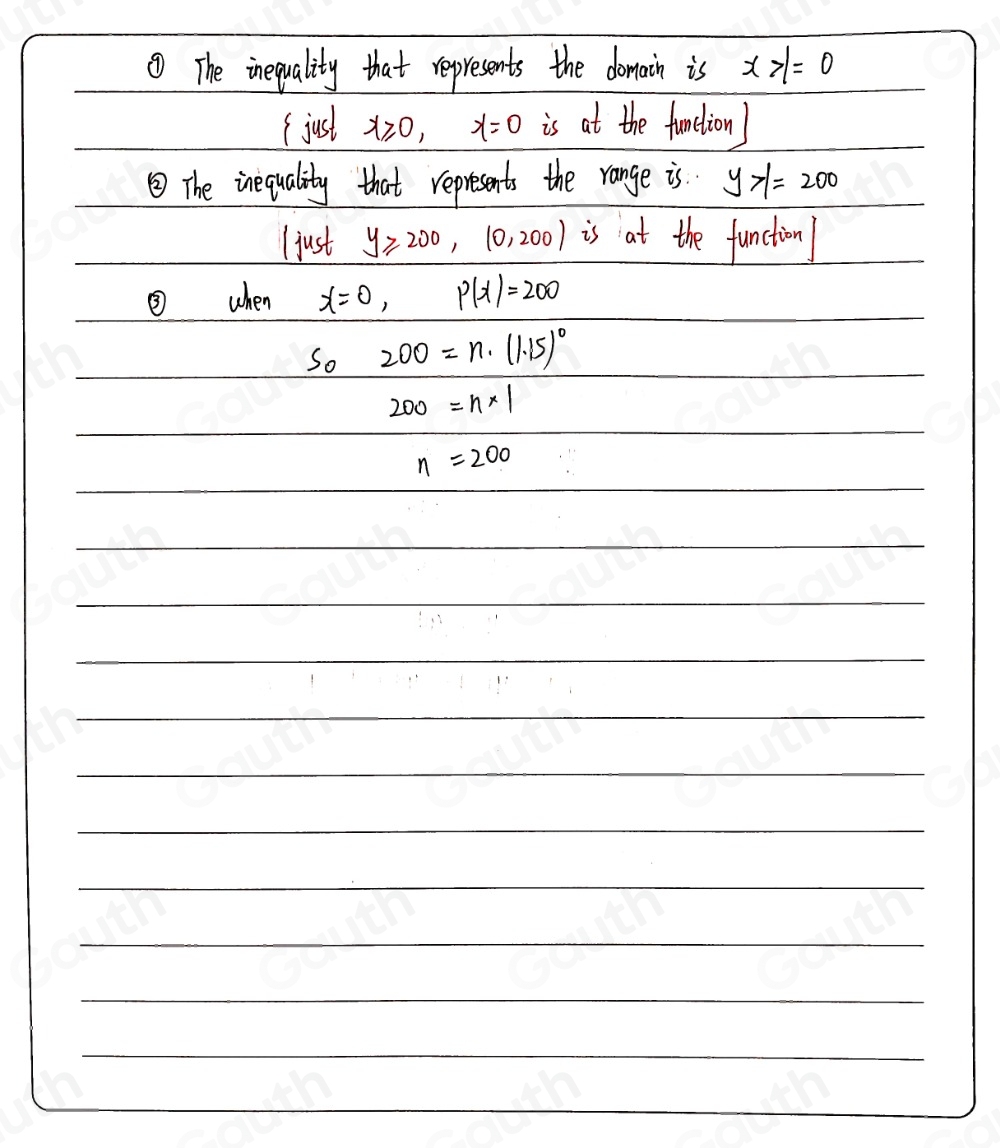 ① The inequality that represents the domain is x >/= 0
{ just x≥0, x=0 is at the function]
② The inequality that represents the range is.. y >/= 200
[just y≥200, (0,200) is at the function]
③ when x=0, P(x)=200
So 200 = n. (1.15)⁰
200 = n × 1
n = 200